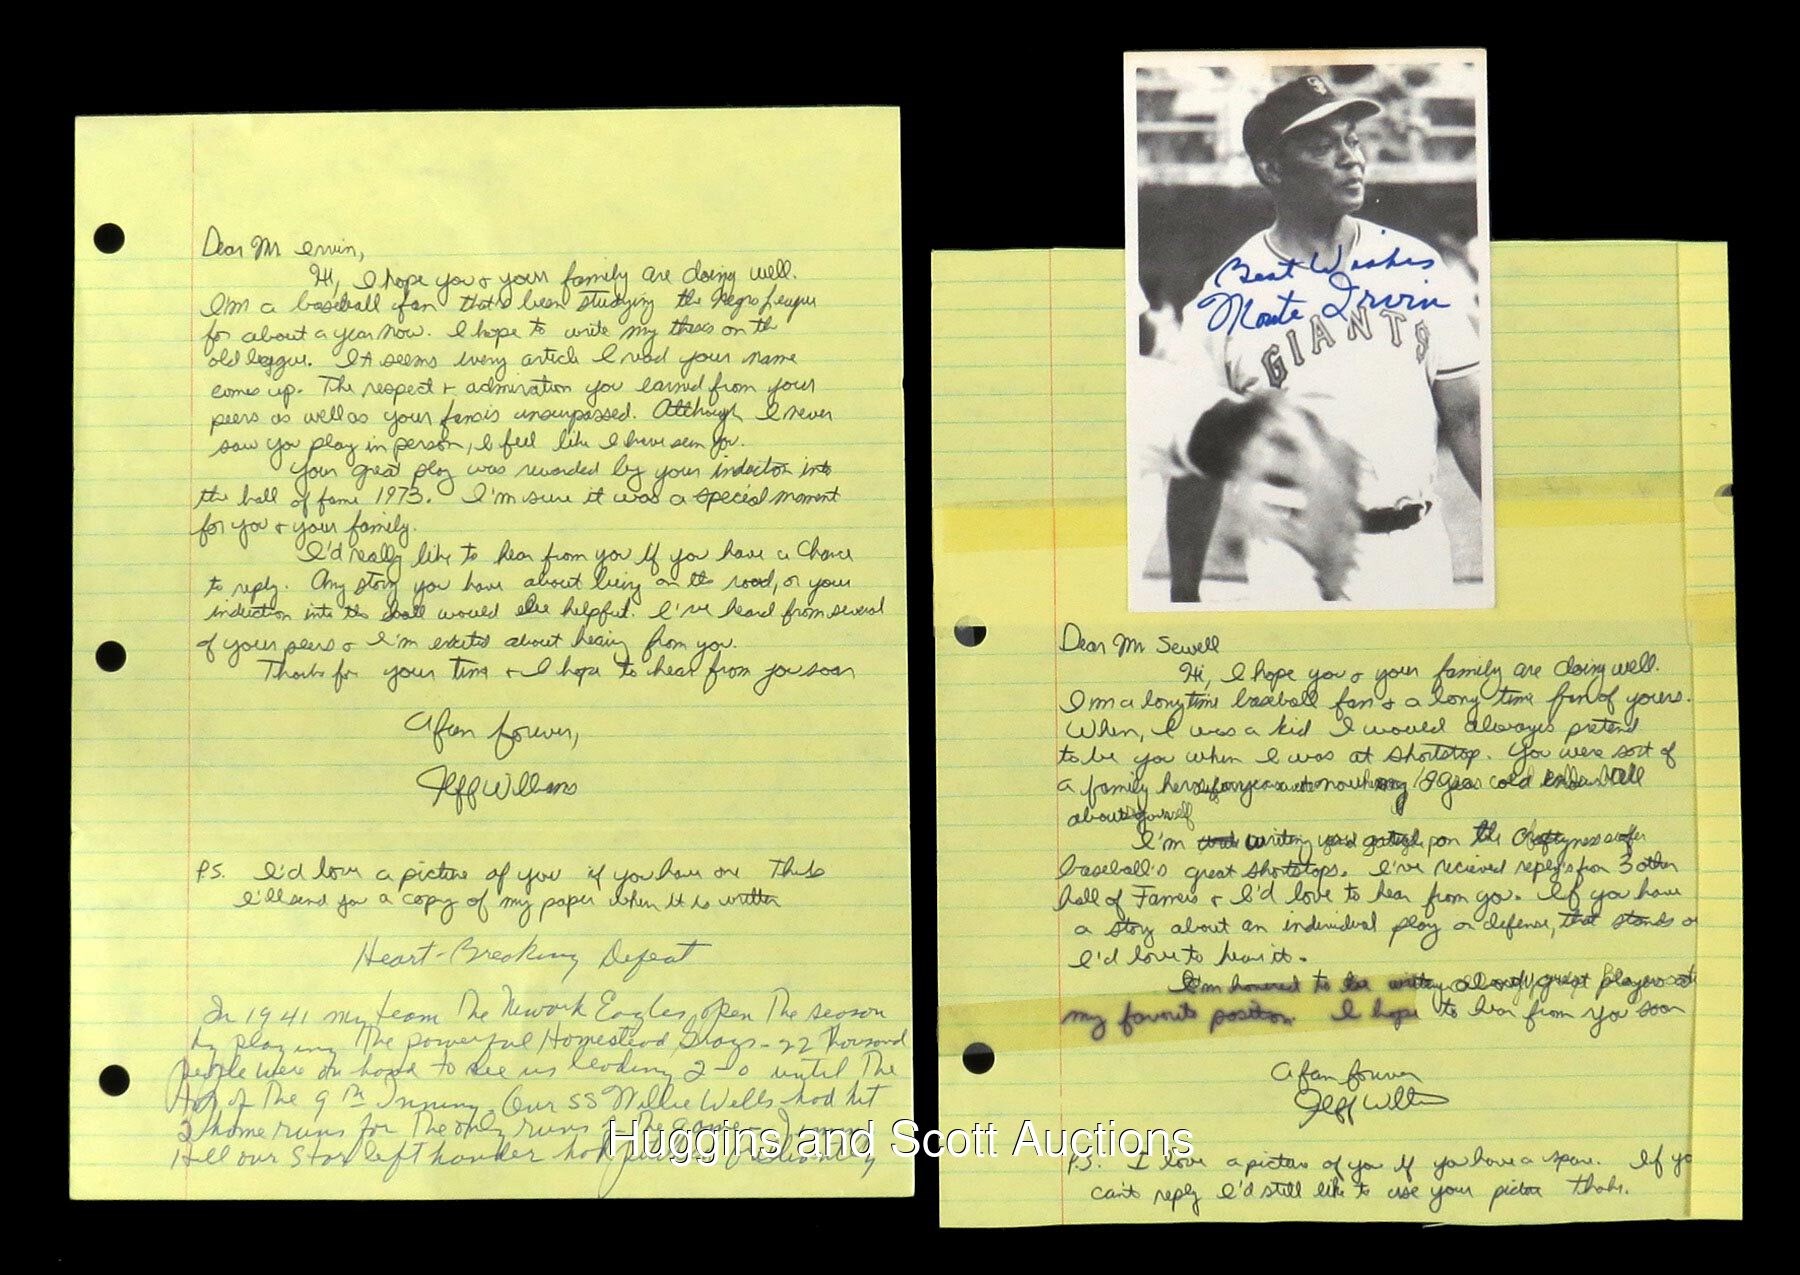 Dear Mr ervin,
Hi, I hope you & your family are doing well.
I'm a baseball fan thats been studying the Negro Leagues
for about a year now. I hope to write my thesis on th
old leggue. It seems every article I read your name
comes up. The respect & admiration you earned from your
peers as well as your fans is unsurpassed. Although I never
saw you play in person, I feel like I have seen you.
Your great play was rewarded by your induction into
the hall of fame 1973. I'm sure it was a special moment
for you & your family.
I'd really like to hear from you if you have a chance
to reply. Any story you have about living on the road, or your
induction into the hall would be helpful. I've heard from several
of your peers & I'm excited about hearing from you.
Thanks for your time & I hope to hear from you soon
A fan forever,
Jeff Williams
P.S. I'd love a picture of you if you have one Thanks
I'll send you a copy of my paper when it is written
Heart-Breaking Defeat
In 1941 my team The Newark Eagles open The season
by playing The powerful Homestead Grays - 22 Thousand
people were on hand to see us leading 2-0 until The
top of The 9th Inning. Our SS Willie Wells had hit
2 home runs for The only runs of The game - Jimmy
Hill our star left hander had pitched brilliantly
Best Wishes
Monte Irvin
GIANTS
Dear Mr Sewell
Hi, I hope you & your family are doing well.
I'm a longtime baseball fan & a long time fan of yours.
When, I was a kid I would always pretend
to be you when I was at shortstop. You were sort of
a family hero my 18 year old
about yourself
I'm writing paper on the of
baseball's great shortstops. I've recieved reply's from 3 other
hall of Famers & I'd love to hear from you. If you have
a story about an individual play on defense, that stands o
I'd love to hear it.
I'm honored to be great player
my favorite position. I hope to hear from you soon
A fan forever
Jeff Williams
P.S. I love a picture of you if you have a spare. If yo
can't reply I'd still like to use your picture Thanks.
Huggins and Scott Auctions